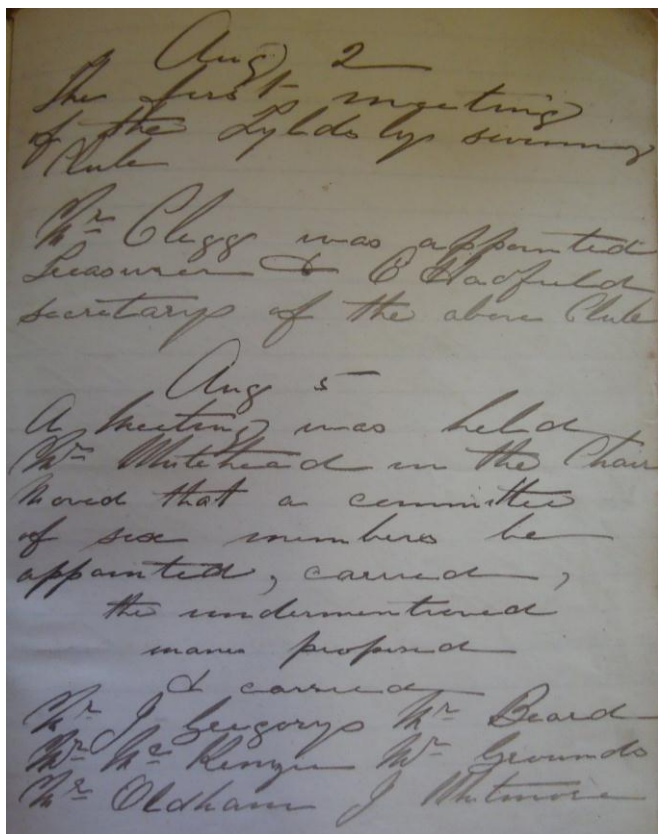 Aug 2
The first meeting
of the Lyldolyp swimming
Club
Mr Clegg was appointed
Treasurer & C Hadfield
secretary of the above Club
Aug 5
A meeting was held
Mr Whitehead in the Chair
Moved that a committee
of six members be
appointed, carried,
the undermentioned
names proposed
& carried
Mr J Gregory Mr Beard
Mr Mc Kenzie Mr Grounds
Mr Oldham J Whitmore